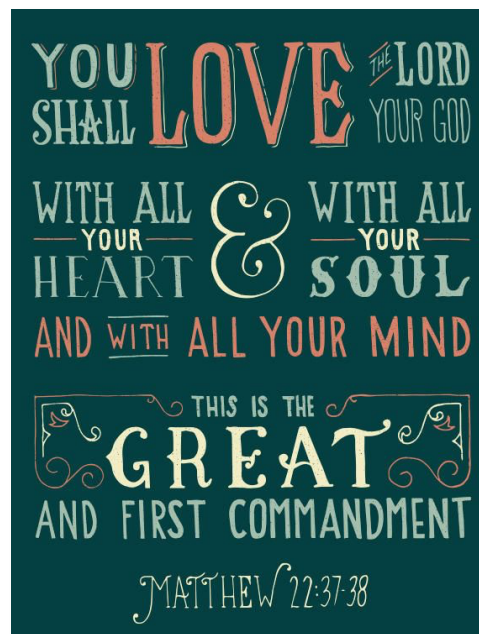 YOU SHALL LOVE THE LORD YOUR GOD
WITH ALL YOUR HEART
&
WITH ALL YOUR SOUL
AND WITH ALL YOUR MIND
THIS IS THE
GREAT
AND FIRST COMMANDMENT
MATTHEW 22:37-38